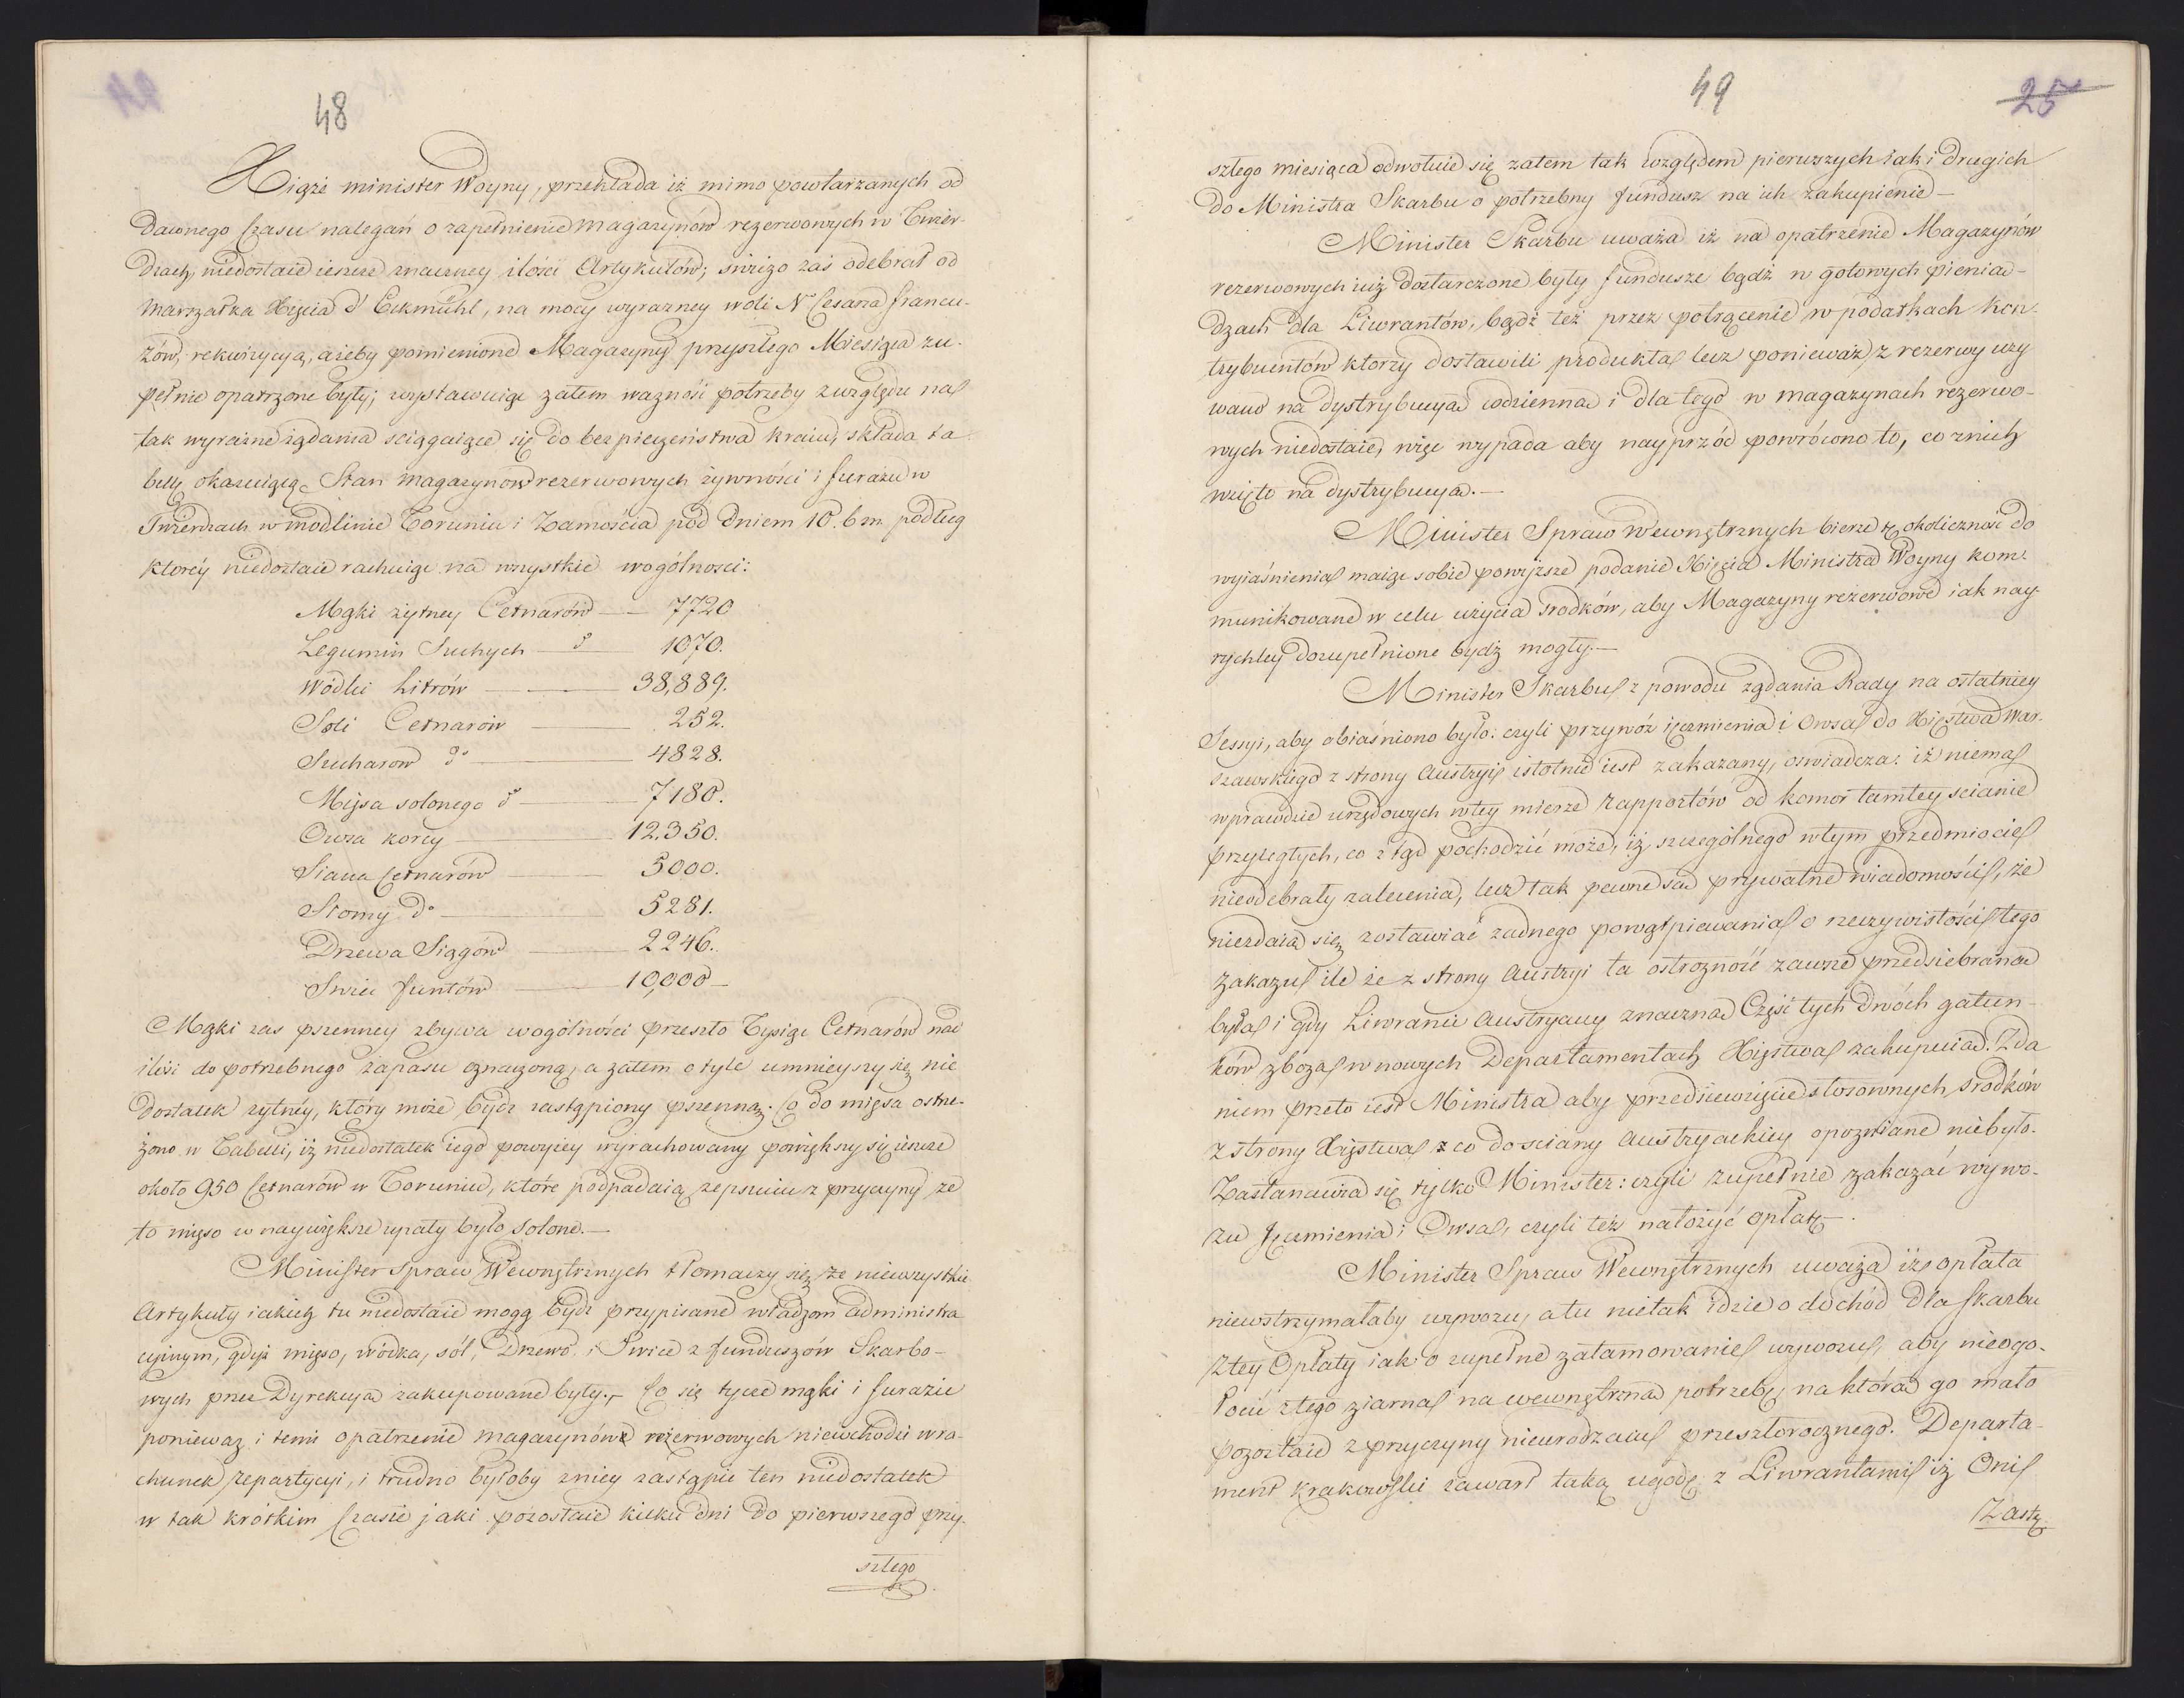 48
Xiąże minister Woyny, przekłada iż mimo powtarzanych od
dawnego Czasu nalegań o zapełnienie magazynów rezerwowych w Twier-
dzach, niedostaie ieszcze znaczney ilości Artykułów; świżo zaś odebrał od
marszałka Xięcia d'Eckmühl, na mocy wyrazney woli N. Cesarza francu-
zów, rekwizycyą, ażeby pomienione Magazyny przyszłego Miesiąca zu-
pełnie opatrzone były; wystawuiąc zatem wazność potrzeby z względu na
tak wyraźne żądania sciągaiące się do bezpieczeństwa kraiu, składa ta-
bellę okazuiącą Stan magazynów rezerwowych żywności i furażu w
Twierdzach w Modlinie Toruniu i Zamościa pod dniem 10. b m. podług
którey niedostaie rachuiąc na wszystkie wogólnosci:
Mąki żytney Cetnarów — 7720
Legumin Suchych — d° — 1070.
Wódki Litrów — 38,889.
Soli Cetnarów — 252.
Sucharow d° — 4828.
Mięsa solonego d° — 7180.
Owsa korcy — 12.350.
Siana Cetnarów — 5000.
Słomy d° — 5281.
Drzewa Siągów — 2246.
Swiec funtów — 10,000 —
Mąki zas pszenney zbywa wogólności przeszło Tysiąc Cetnarów nad
ilość do potrzebnego zapasu oznaczoną, a zatem o tyle umnieyszy się nie
dostatek żytnéy, który może bydz zastąpiony pszenną. Co do mięsa ostrze-
żono w Tabelli, iż niedostatek iego powyżey wyrachowany powiększy się ieszcze
około 950 Cetnarów w Toruniu, które podpadaią zepsuciu z przyczyny, ze
to mięso w naywiększe upały było solone.—
Minister Spraw Wewnętrznych tłomaczy się, że niewszystkie
Artykuły iakich tu niedostaie mogą bydz przypisane władzom administra
cyinym, gdyż mięso, wódka, sól, Drzewo i Swice z funduszów Skarbo-
wych przez Dyrekcyą zakupowane były.— Co się tycze mąki i furażu
ponieważ i temi opatrzenie magazynów rezerwowych niewchodzi w ra-
chunek repartycyi, i trudno byłoby zniey zastąpić ten niedostatek
w tak krótkim Czasie jaki pozostaie kilku dni do pierwszego przy-
szłego
49
25
szłego miesiąca odwołuie się zatem tak względem pierwszych iak i drugich
do Ministra Skarbu o potrzebny fundusz na ich zakupienie —
Minister Skarbu uważa iż na opatrzenie Magazynów
rezerwowych iuż dostarczone były fundusze bądź w gotowych pienią-
dzach dla Liwrantów, bądź też przez potrącenie w podatkach kon-
trybuentów którzy dostawili produkta lecz ponieważ z rezerwy uży
wano na dystrybucyą codzienną i dla tego w magazynach rezerwo-
wych niedostaie, więc wypada aby nayprzód powrócono to, co znich
wzięto na dystrybucyą.—
Minister Spraw Wewnętrznych bierze tę okoliczność do
wyiaśnienia maiąc sobie powyższe podanie Xięcia Ministra Woyny kom-
munikowane w celu użycia środków, aby Magazyny rezerwowe iak nay-
rychley dozupełnione bydź mogły.—
Minister Skarbu z powodu żądania Rady na ostatniey
Sessyi, aby obiaśniono było: czyli przywóz ięczmienia i Owsa do Xięstwa War-
szawskiego z strony Austryi istotnie iest zakazany, oswiadcza: iż niema
wprawdzie urzędowych wtey mierze rapportów od komor tamtey scianie
przyległych, co ztąd pochodzić może, iż szczególnego wtym przedmiocie
nieodebrały zalecenia, lecz tak pewne są prywatne wiadomości, że
niezdaią się zostawiać żadnego powątpiewania o rzeczywistości tego
zakazu ile że z strony Austryi ta ostrożność zawsze przedsiebrana
była i gdy Liwranci Austryaccy znaczną Część tych dwóch gatun-
ków zboża w nowych Departamentach Xięstwa zakupuią. Zda
niem przeto iest Ministra aby przedsiewzięcie stosownych środków
z strony Xięstwa co do sciany Austryackiey opoźniane niebyło.
Zastanawia się tylko Minister: czyli zupełnie zakazać wywo-
zu Jęczmienia i Owsa, czyli też nałożyć opłatę —.
Minister Spraw Wewnętrznych uważa iż opłata
niewstrzymałaby wywozu, a tu nietak idzie o dochód dla skarbu
z tey Opłaty iak o zupełne zatamowanie wywozu, aby nieogo-
łocić z tego ziarna na wewnętrzną potrzebę, na którą go mało
pozostaie z przyczyny nieurodzaiu przeszłorocznego. Departa-
ment krakowski zawarł taką ugodę z Liwrantami iż Oni
Zastą.